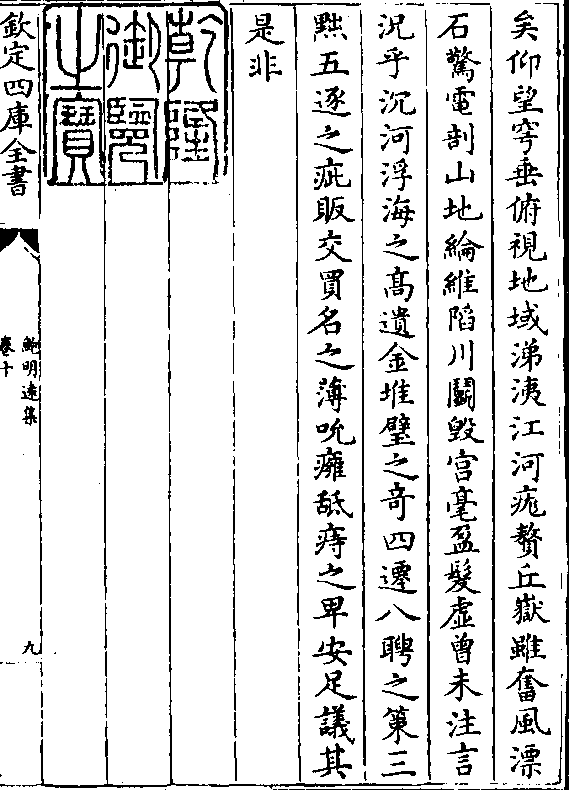 矣仰望穹垂俯視地域涕洟江河疣贅丘嶽雖奮風漂
石驚電剖山地綸維陷川鬭毀宫毫盈髮虛曾未注言
況乎沉河浮海之髙遺金堆璧之奇四遷八聘之策三
黜五逐之疵販交買名之薄吮癰舐痔之卑安足議其
是非
乾隆
御覽
之寶
欽定四庫全書
鮑明逺集
卷十
九